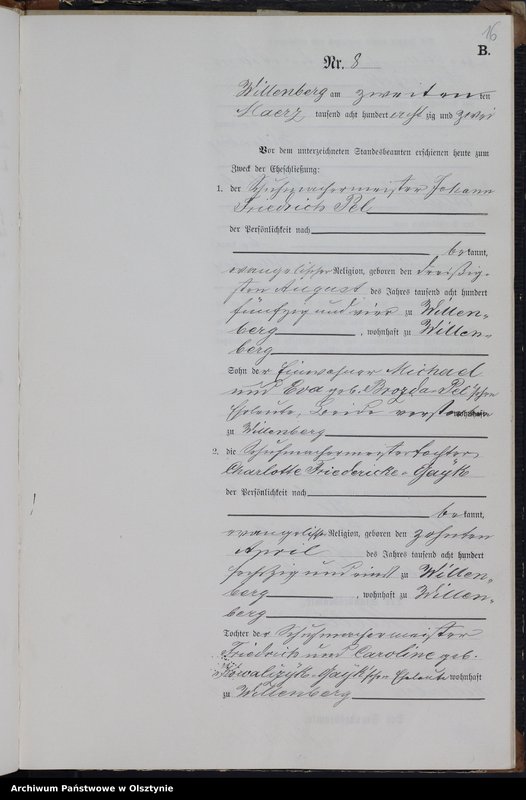 16
B.
Nr. 8
Willenberg am zweiten ten
Maerz tausend acht hundert acht zig und zwei
Vor dem unterzeichneten Standesbeamten erschienen heute zum
Zweck der Eheschließung:
1. der Schuhmachermeister Johann
Friedrich Pel
der Persönlichkeit nach
be kannt,
evangelischer Religion, geboren den dreißig-
sten August des Jahres tausend acht hundert
fünfzig und vier zu Willen-
berg, wohnhaft zu Willen-
berg
Sohn der Einwohner Michael
und Eva geb. Brozda - Pel'schen
Eheleute, beide verstorben wohnhaft
zu Willenberg
2. die Schuhmachermeistertochter
Charlotte Friedericke Gayk
der Persönlichkeit nach
be kannt,
evangelischer Religion, geboren den zehnten
April des Jahres tausend acht hundert
sechszig und eins zu Willen-
berg, wohnhaft zu Willen-
berg
Tochter der Schuhmachermeister
Friedrich und Caroline geb.
Kowalizyk - Gayk'schen Eheleute wohnhaft
zu Willenberg
Archiwum Państwowe w Olsztynie